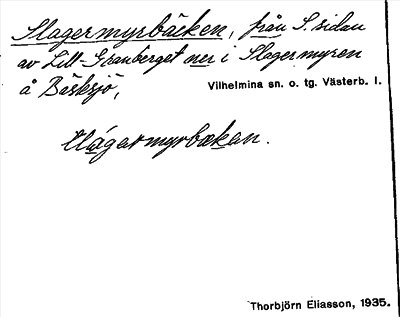 Slagermyrbäcken, från S. sidan
av Lill-Granberget ner i Slagermyren
å Bäsksjö, Vilhelmina sn. o. tg. Västerb. l.
Thorbjörn Eliasson, 1935.